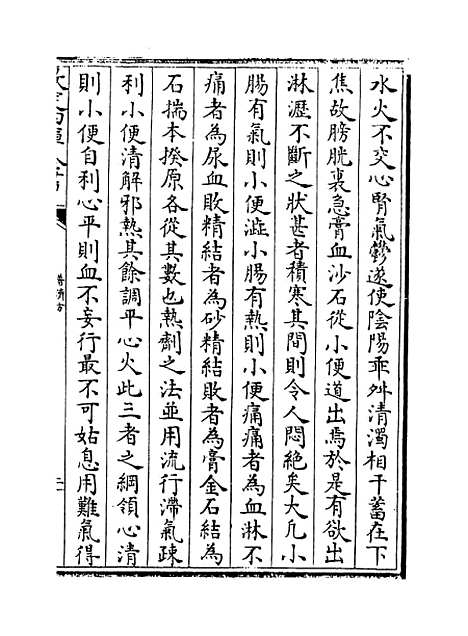 水火不交心腎氣鬱遂使陰陽乖舛清濁相干蓄在下
焦故膀胱裏急膏血沙石從小便道出焉於是有欲出
淋瀝不斷之狀甚者積寒其間則令人悶絶矣大凡小
腸有氣則小便澁小腸有熱則小便痛痛者為血淋不
痛者為尿血敗精結者為砂精結敗者為膏金石結為
石揣本揆原各從其數也熱劑之法並用流行滯氣疎
利小便清解邪熱其餘調平心火此三者之綱領心清
則小便自利心平則血不妄行最不可姑息用難氣得
普濟方
二